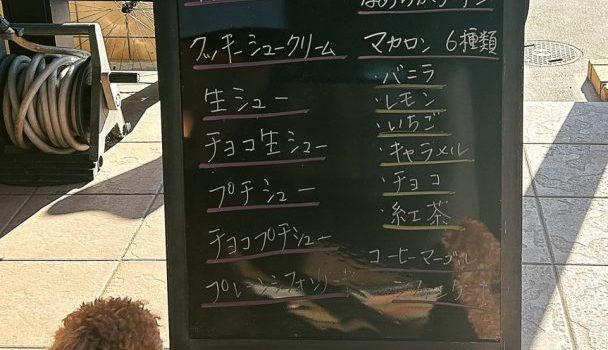 クッキーシュークリーム
生シュー
チョコ生シュー
プチシュー
チョコプチシュー
プレーンシフォン
マカロン 6種類
・バニラ
・レモン
・いちご
・キャラメル
・チョコ
・紅茶
コーヒーマーブル